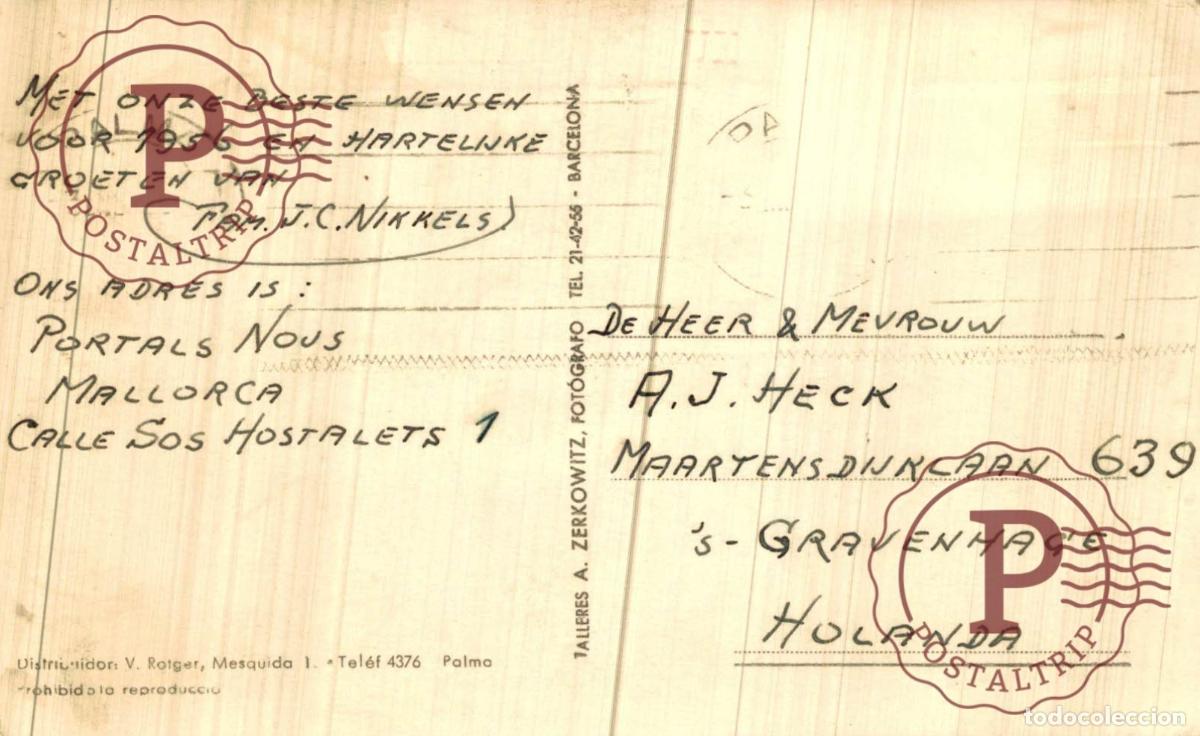 MET ONZE BESTE WENSEN
VOOR 1956 EN HARTELIJKE
GROETEN VAN
FAM. J.C. NIKKELS
ONS ADRES IS :
PORTALS NOUS
MALLORCA
CALLE SOS HOSTALETS 1
Distribuidor: V. Rotger, Mesquida 1. - Teléf 4376 Palma
Prohibida la reproducció
TALLERES A. ZERKOWITZ, FOTÓGRAFO TEL. 21-42-66 - BARCELONA
DE HEER & MEVROUW
A.J. HECK
MAARTENSDIJKLAAN 639
's-GRAVENHAGE
HOLANDA
P
POSTALTRIP
P
POSTALTRIP
todocoleccion